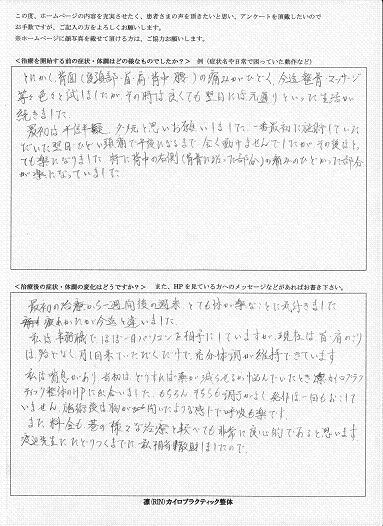 この度、ホームページの内容を充実させたく、患者さまの声を頂きたいと思い、アンケートを頂戴したいので
お手数ですが、ご記入の方をよろしくお願いします。
※ホームページに顔写真を載せて頂ける方は、ご協力お願いします。
<治療を開始する前の症状・体調はどの様なものでしたか？> 例（症状名や日常で困っていた動作など）
とにかく、背面（後頭部・首・肩・背中・腰）の痛みがひどく、今迄整骨・マッサージ
等色々と試しましたが、その時は良くても翌日には元通りといった生活が
続きました。
最初は半信半疑 と思いお願いしました。一番最初に施術していた
だいた翌日、ひどい頭痛で午後になるまで全く動けませんでしたが、その後はと
ても楽になりました。特に背中の左側（肩甲骨に沿った部分）の痛みのひどかった部分
が楽になっていました。
<治療後の症状・体調の変化はどうですか？> また、HPを見ている方へのメッセージなどがあればお書き下さい。
最初の治療から一週間後の週末、とても体が楽なことに気付きました
疲れかたが今迄と違いました。
私は事務職でほぼ一日パソコンを相手にしていますが、現在は首・肩のこり
は殆どなく、月1回来ていただくだけで、充分体調が維持できています
私は喘息があり、当初は、どうすれば薬が減らせるか悩んでいたとき凛カイロプラク
ティック整体のHPに出会いました。もちろんそちらも調子がよく発作は一回もおこして
いません。施術後は胸が 開いたような感じで呼吸も楽です。
また、料金も巷の様々な治療と較べても非常に良心的であると思います
先生にたどりつくまでに私 ましたので。
凛(RIN)カイロプラクティック整体